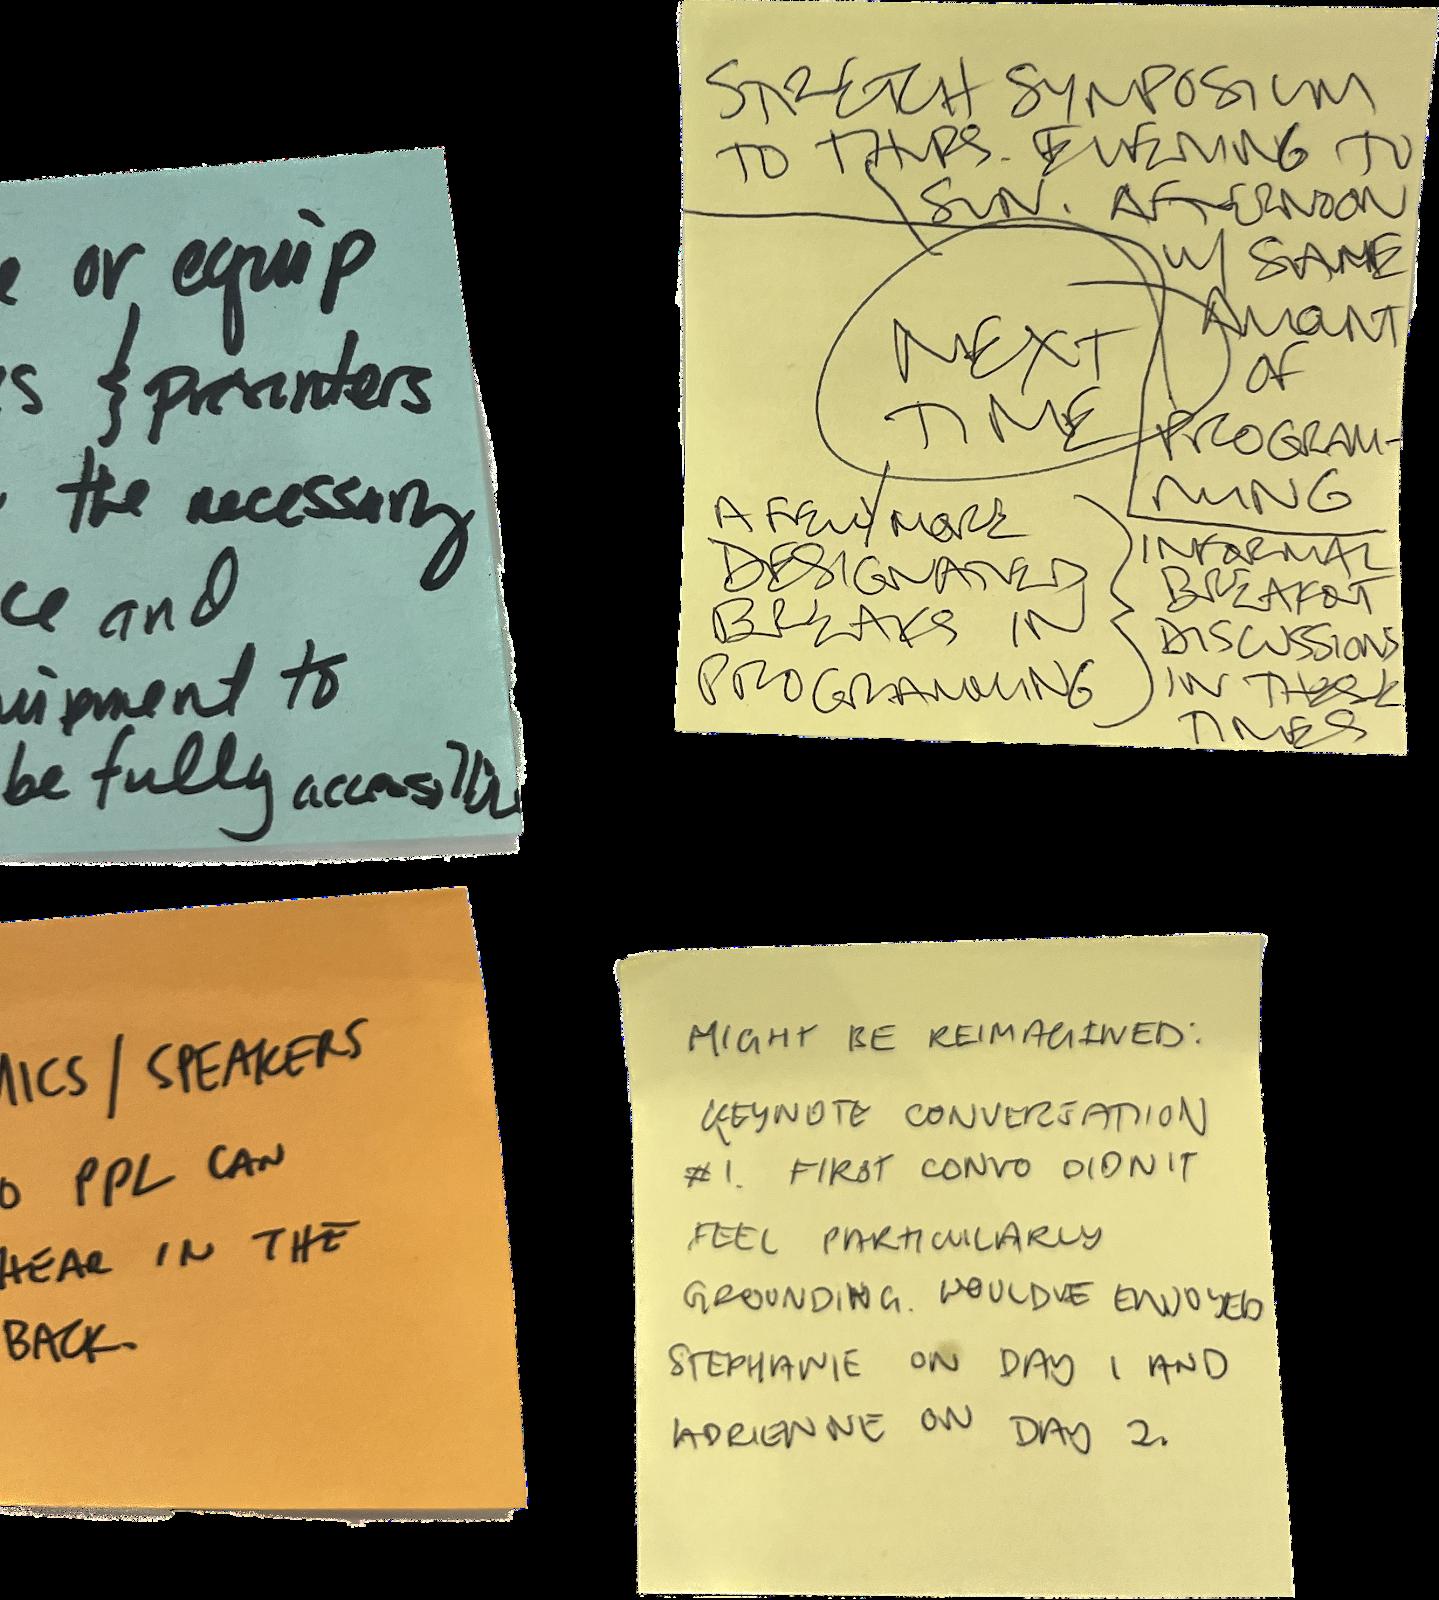 or equip
& presenters
the necessary
and
to
be fully accessible
STRETCH SYMPOSIUM
TO THURS. EVENING TO
SUN. AFTERNOON
W/ SAME
AMOUNT
OF
PROGRAM-
MING
NEXT
TIME
A FEW MORE
DESIGNATED
BREAKS IN
PROGRAMMING
INFORMAL
BREAKOUT
DISCUSSIONS
IN THESE
TIMES
MICS / SPEAKERS
PPL CAN
HEAR IN THE
BACK.
MIGHT BE REIMAGINED:
KEYNOTE CONVERSATION
#1. FIRST CONVO DIDN'T
FEEL PARTICULARLY
GROUNDING. WOULDVE ENJOYED
STEPHANIE ON DAY 1 AND
ADRIENNE ON DAY 2.